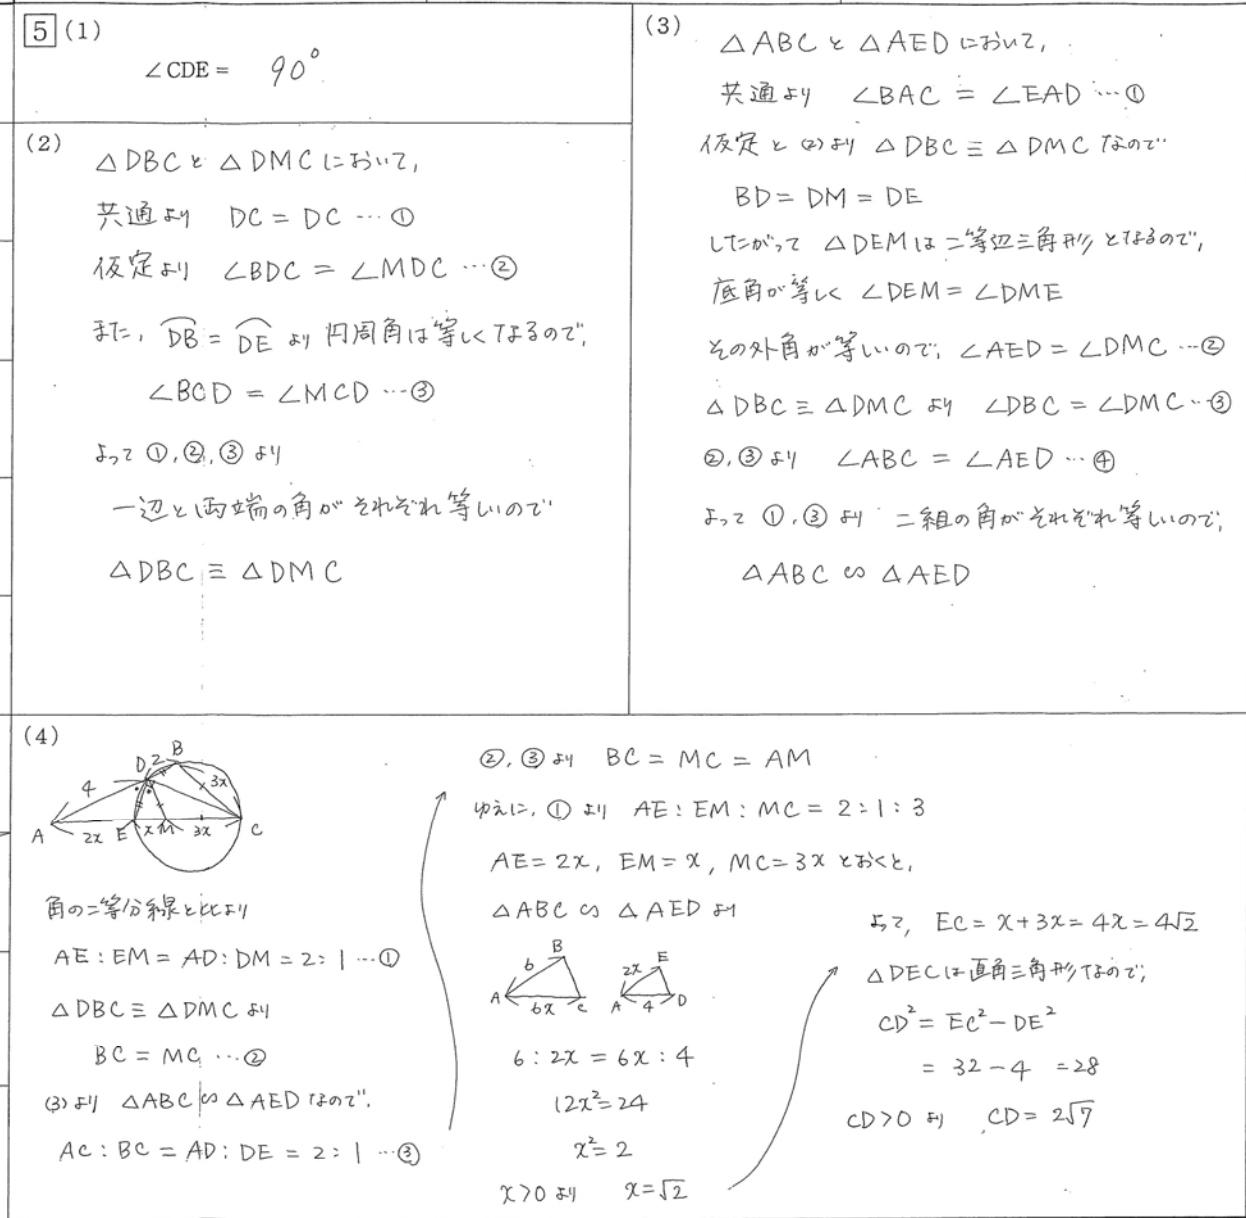 5 (1)
∠CDE = 90°
(2)
△DBCと△DMCにおいて,
共通より DC = DC …①
仮定より ∠BDC = ∠MDC …②
また, DB = DE より円周角は等しくなるので,
∠BCD = ∠MCD …③
よって①,②,③より
一辺と両端の角がそれぞれ等しいので
△DBC ≡ △DMC
(3)
△ABCと△AEDにおいて,
共通より ∠BAC = ∠EAD …①
仮定と(2)より △DBC ≡ △DMCなので
BD = DM = DE
したがって △DEMは二等辺三角形となるので,
底角が等しく ∠DEM = ∠DME
その外角が等しいので, ∠AED = ∠DMC …②
△DBC ≡ △DMCより ∠DBC = ∠DMC …③
②,③より ∠ABC = ∠AED …④
よって①,③より 二組の角がそれぞれ等しいので,
△ABC ∽ △AED
(4)
D 2 B
4
3x
A 2x E x M 3x C
角の二等分線と比より
AE : EM = AD : DM = 2 : 1 …①
△DBC ≡ △DMCより
BC = MC …②
(3)より △ABC ∽ △AEDなので,
AC : BC = AD : DE = 2 : 1 …③
②,③より BC = MC = AM
ゆえに, ①より AE : EM : MC = 2 : 1 : 3
AE = 2x, EM = x, MC = 3xとおくと,
△ABC ∽ △AEDより
B
6
A 6x C
E
2x
A 4 D
6 : 2x = 6x : 4
12x² = 24
x² = 2
x > 0より x = √2
よって, EC = x + 3x = 4x = 4√2
△DECは直角三角形なので,
CD² = EC² − DE²
= 32 − 4 = 28
CD > 0より CD = 2√7